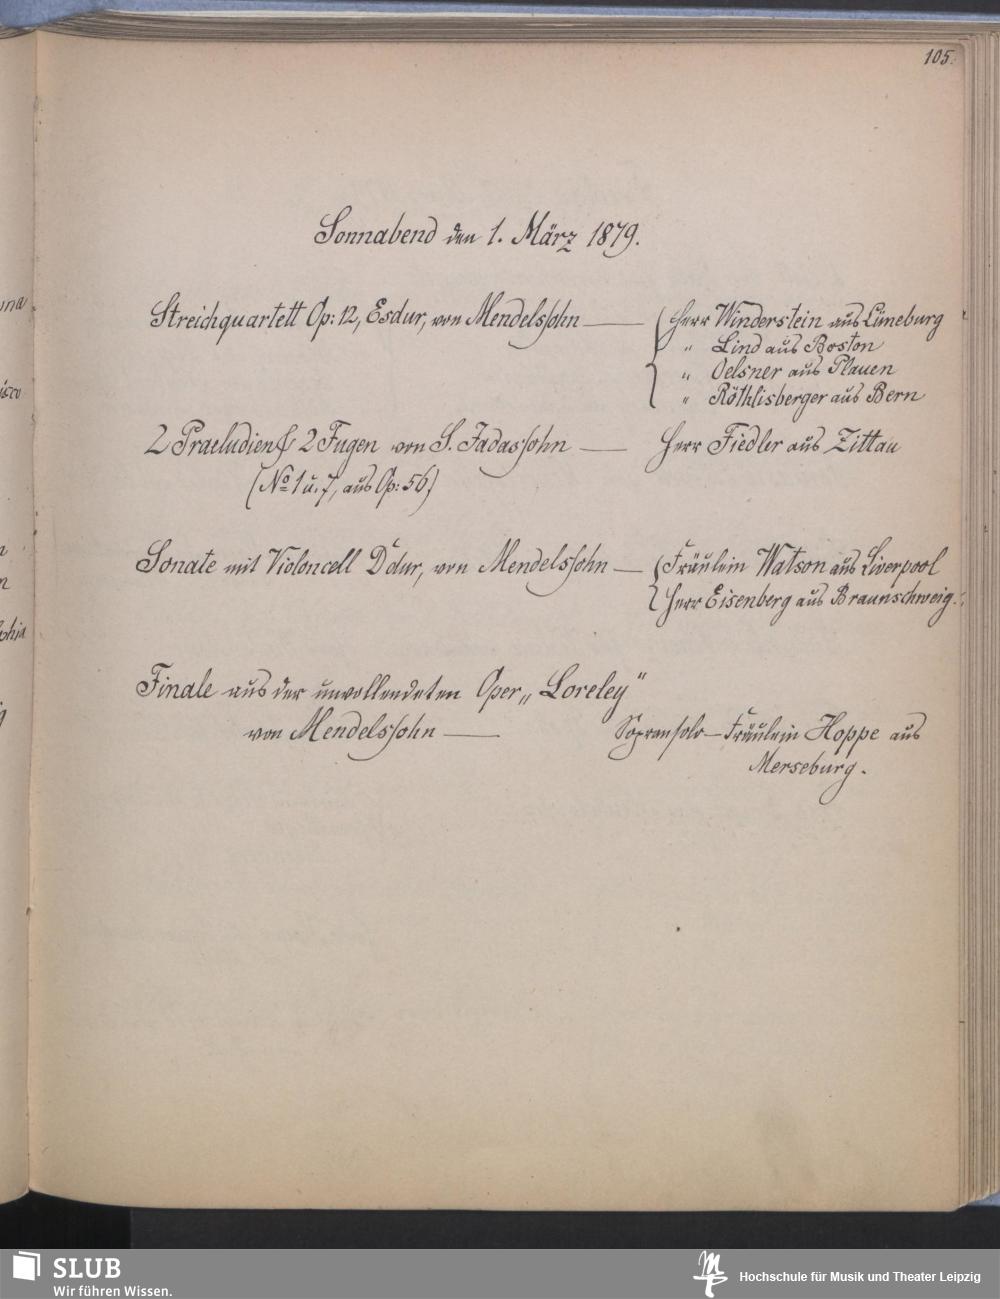 105.
Sonnabend den 1. März 1879.
Streichquartett Op: 12, Esdur, von Mendelssohn — Herr Winderstein aus Lüneburg
„ Lind aus Boston
„ Oelsner aus Plauen
„ Röthlisberger aus Bern
2 Praeludien & 2 Fugen von S. Jadassohn — Herr Fiedler aus Zittau
(No 1 u. 7, aus Op: 56)
Sonate mit Violoncell Ddur, von Mendelssohn — Fräulein Watson aus Liverpool
Herr Eisenberg aus Braunschweig.
Finale aus der unvollendeten Oper „Loreley"
von Mendelssohn — Sopransolo — Fräulein Hoppe aus
Merseburg.
SLUB
Wir führen Wissen.
Hochschule für Musik und Theater Leipzig